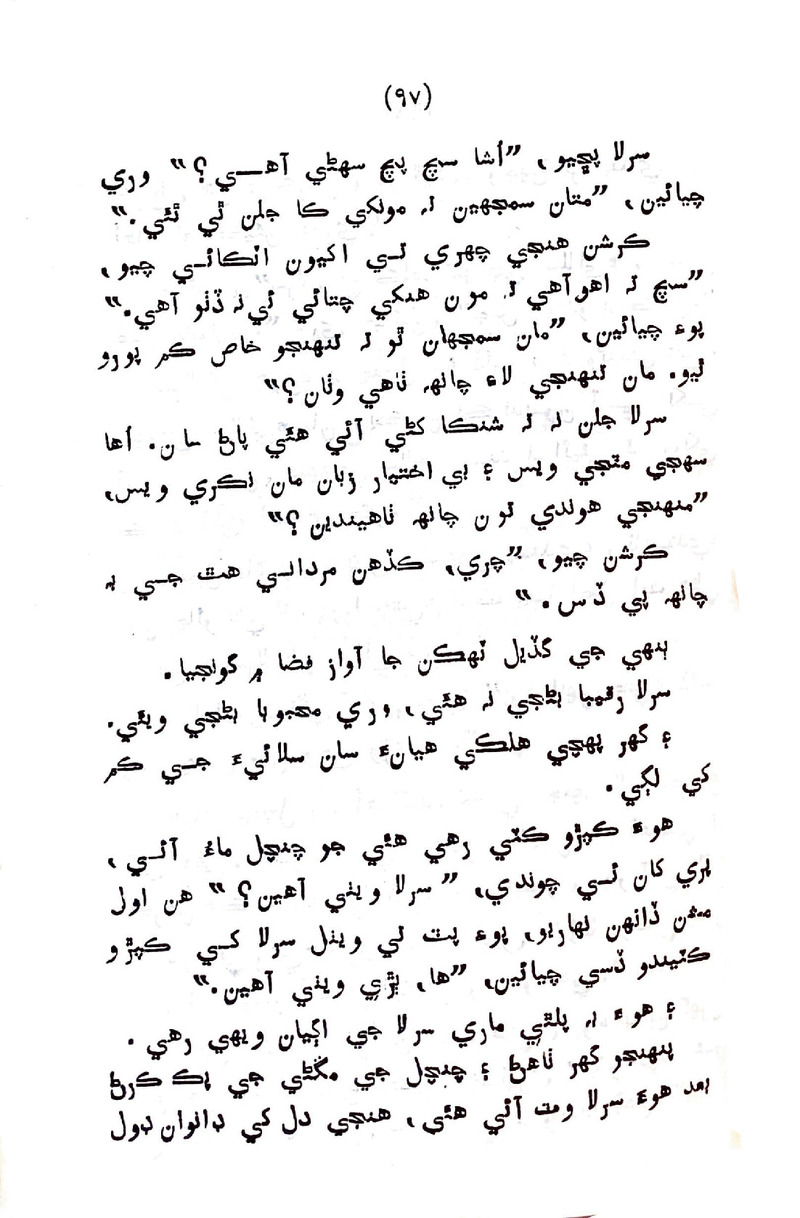 (۹۷)
سرلا پڇيو، ”اُشا سچ پچ سهڻي آهــي؟“ وري
چيائين، ”متان سمجهين ته مونکي ڪا جلن ٿي ٿئي.“
ڪرشن هنجي چهري تــي اکيون اٽڪائــي چيو،
”سچ ته اهو آهي ته مون هنکي چتائي ئي نه ڏٺو آهي.“
پوءِ چيائين، ”مان سمجهان ٿو ته تنهنجو خاص ڪم پورو
ٿيو. مان تنهنجي لاءِ چانهه ٺاهي وٺان؟“
سرلا جلن نه ته شنڪا کڻي آئي هئي پاڻ سان. اُها
سهجي مٽجي ويس ۽ بي اختيار زبان مان نڪري ويس،
”منهنجي هوندي تون چانهه ٺاهيندين؟“
ڪرشن چيو، ”چري، ڪڏهن مردانــي هٿ جــي به
چانهه پي ڏس.“
ٻنهي جي گڏيل ٽهڪن جا آواز فضا ۾ گونجيا.
سرلا رقيبا بڻجي نه هئي، وري محبوبا بڻجي ويئي.
۽ گهر پهچي هلڪي هيانءَ سان سلائيءَ جــي ڪم
کي لڳي.
هوءَ ڪپڙو ڪٽي رهي هئي جو چنچل ماءُ آئــي،
پري کان ئــي چوندي، ”سرلا ويٺي آهين؟“ هن اول
مشن ڏانهن نهاريو، پوءِ پٽ تي ويٺل سرلا کــي ڪپڙو
ڪٽيندو ڏسي چيائين، ”ها، ٻڙي ويٺي آهين.“
۽ هوءَ به پلٿي ماري سرلا جي اڳيان ويهي رهي.
پنهنجو گهر ٺاهڻ ۽ چنچل جي مڱڻي جي پڪ ڪرڻ
بعد هوءَ سرلا وٽ آئي هئي، هنجي دل کي ڊانوان ڊول